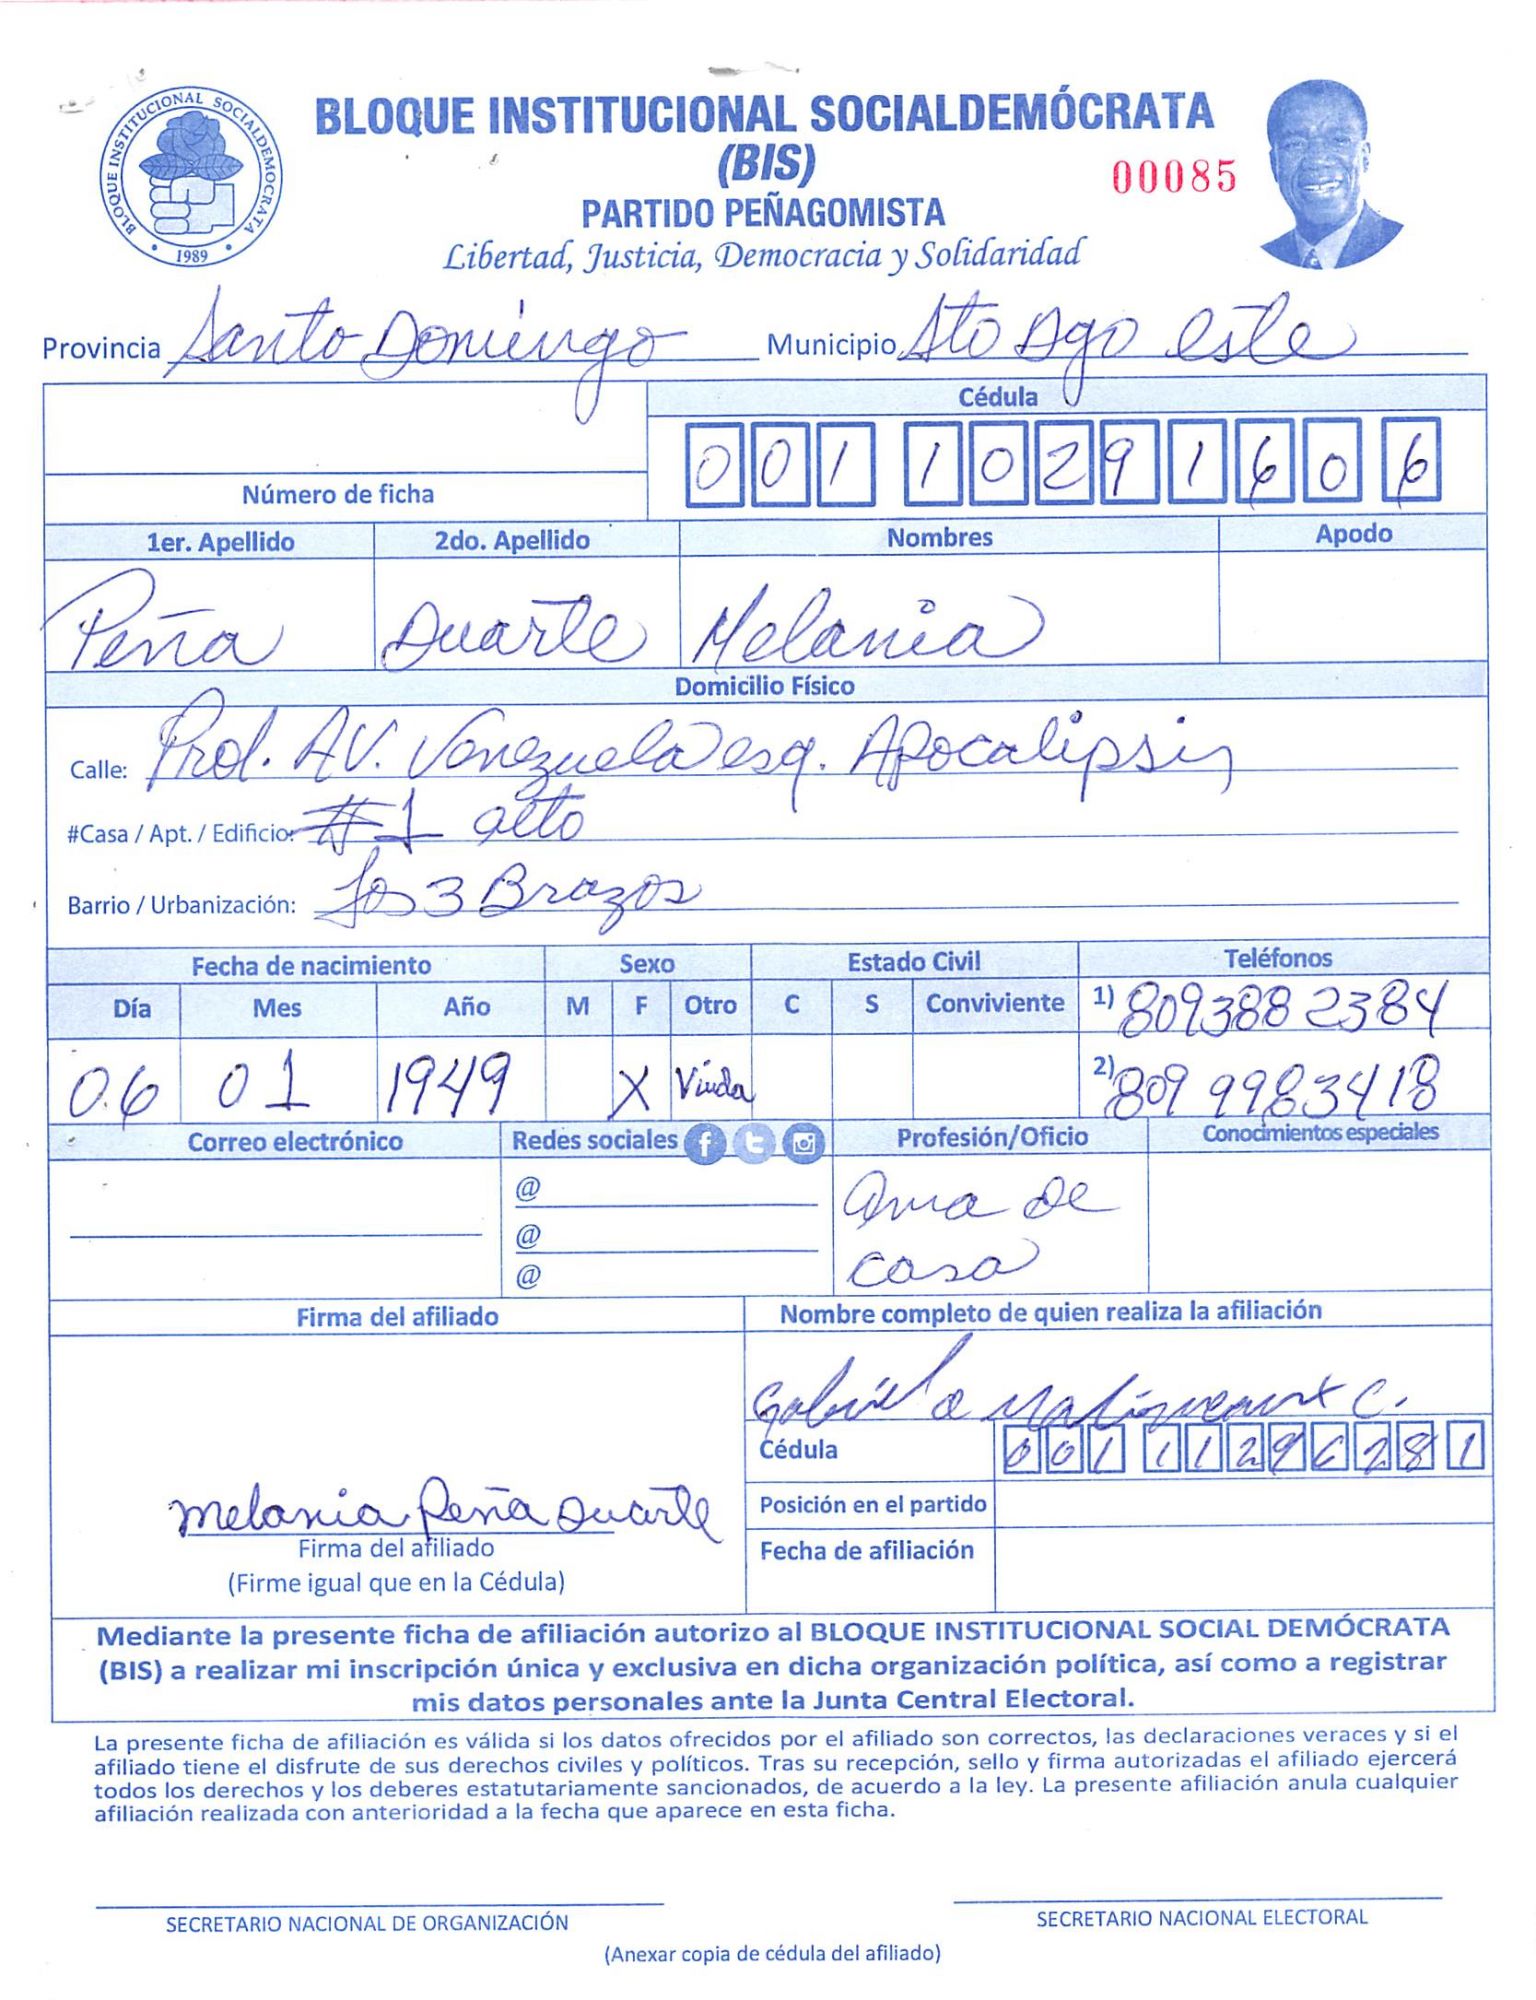 BLOQUE INSTITUCIONAL SOCIALDEMOCRATA
1989
BLOQUE INSTITUCIONAL SOCIALDEMÓCRATA
(BIS)
00085
PARTIDO PEÑAGOMISTA
Libertad, Justicia, Democracia y Solidaridad
Provincia Santo Domingo Municipio Sto Dgo este
Cédula
001 1029160 6
Número de ficha
1er. Apellido 2do. Apellido Nombres Apodo
Peña Duarte Melania
Domicilio Físico
Calle: Prol. AV. Venezuela esq. Apocalipsis
#Casa / Apt. / Edificio: #1 alto
Barrio / Urbanización: Los 3 Brazos
Fecha de nacimiento Sexo Estado Civil Teléfonos
Día Mes Año M F Otro C S Conviviente 1) 809388 2384
06 01 1949 X Viuda 2) 809 9983418
Correo electrónico Redes sociales Profesión/Oficio Conocimientos especiales
@ ama de
@ casa
@
Firma del afiliado Nombre completo de quien realiza la afiliación
C.
Cédula 001 1129628 1
Posición en el partido
Melania Peña Duarte
Firma del afiliado
Fecha de afiliación
(Firme igual que en la Cédula)
Mediante la presente ficha de afiliación autorizo al BLOQUE INSTITUCIONAL SOCIAL DEMÓCRATA
(BIS) a realizar mi inscripción única y exclusiva en dicha organización política, así como a registrar
mis datos personales ante la Junta Central Electoral.
La presente ficha de afiliación es válida si los datos ofrecidos por el afiliado son correctos, las declaraciones veraces y si el
afiliado tiene el disfrute de sus derechos civiles y políticos. Tras su recepción, sello y firma autorizadas el afiliado ejercerá
todos los derechos y los deberes estatutariamente sancionados, de acuerdo a la ley. La presente afiliación anula cualquier
afiliación realizada con anterioridad a la fecha que aparece en esta ficha.
SECRETARIO NACIONAL DE ORGANIZACIÓN SECRETARIO NACIONAL ELECTORAL
(Anexar copia de cédula del afiliado)